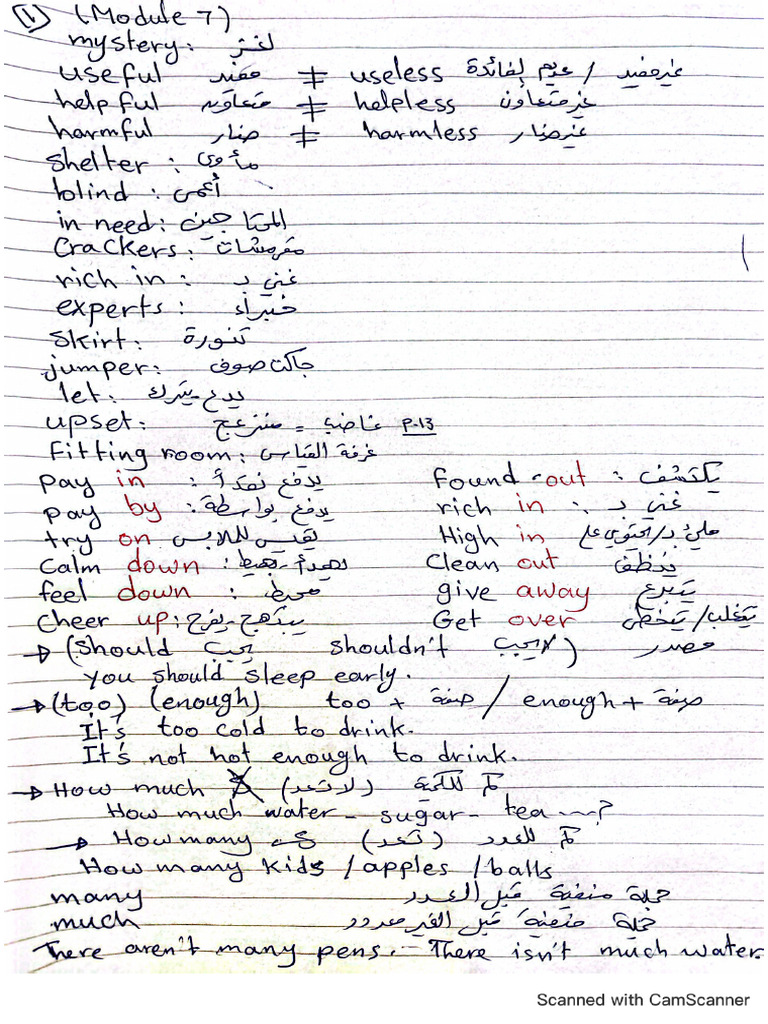 (1) (Module 7)
mystery: لغز
useful مفيد ≠ useless عديم الفائدة / غير مفيد
helpful متعاون ≠ helpless غير متعاون
harmful ضار ≠ harmless غير ضار
shelter: مأوى
blind: أعمى
in need: المحتاجين
Crackers: مقرمشات
rich in: غني بـ
experts: خبراء
skirt: تنورة
jumper: جاكت صوف
let: يدع - يترك
upset: منزعج = غاضب P.13
Fitting room: غرفة القياس
pay in: يدفع نقداً Found out: يكتشف
pay by: يدفع بواسطة rich in: غني بـ
try on يقيس للملابس High in مليئ بـ/يحتوي على
Calm down: يهدأ - يهبط Clean out ينظف
feel down: محبط give away يتبرع
Cheer up: يبتهج - يفرح Get over يتغلب/يتخطى
→ (Should يجب shouldn't لا يجب) مصدر
you should sleep early.
→ (too) (enough) too + صفة / enough + صفة
It's too cold to drink.
It's not hot enough to drink.
→ How much (لا تعد) كم للكمية
How much water - sugar - tea ...?
→ How many (تعد) كم للعدد
How many kids / apples / balls
many جملة منفية قبل العدد
much جملة منفية قبل الغير معدود
There aren't many pens. - There isn't much water.
Scanned with CamScanner